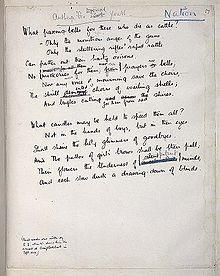 Nation
Doomed
Anthem for Dead Youth
What passing bells for these who die as cattle?
Only the monstrous anger of the guns.
Only the stuttering rifles' rapid rattle
Can patter out their hasty orisons.
No mockeries for them; from prayers or bells,
Nor any voice of mourning save the choirs,
The shrill demented choirs of wailing shells;
And bugles calling sad across the shires.
for them from sad
What candles may be held to speed them all?
Not in the hands of boys, but in their eyes
Shall shine the holy glimmers of goodbyes.
And The pallor of girls' brows shall be their pall;
Their flowers the tenderness of silent minds,
And each slow dusk a drawing-down of blinds.